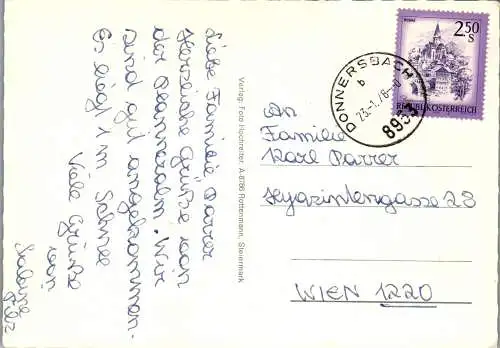 Liebe Familie Parrer
Herzliche Grüße von
der Planneralm. Wir
sind gut angekommen.
Es liegt 1 m Schnee
Viele Grüße
von
Sabine
Verlag: Foto Hochreiter, A-8786 Rottenmann, Steiermark
MURAU
2.50
S
REPUBLIK ÖSTERREICH
DONNERSBACH
b
23.-1.78-
8953
An
Familie
Karl Parrer
Hyazintengasse 28
WIEN 1220